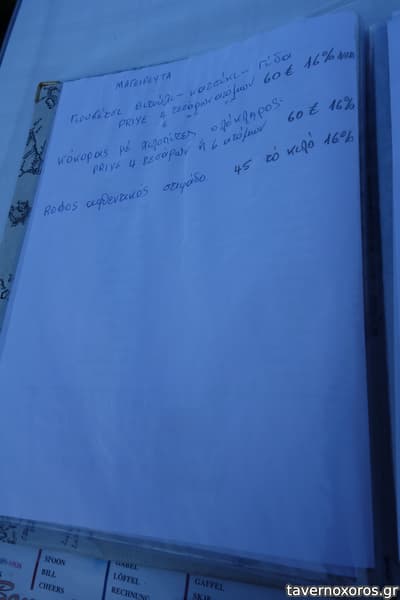 ΜΑΓΕΙΡΕΥΤΑ
Γιουβέτσι Μπούτι - κατσίκι - Γίδα
PRIVE 4 τεσάρων ατόμων 60 € 16%
κόκορας μέ χυλοπίτες ολόκληρος.
PRIVE 4 τεσάρων ή 6 ατόμων 60 € 16%
Ροφος αυθεντικος στιφάδο 45 τό κιλό 16%
SPOON
BILL
CHEERS
GABEL
LÖFFEL
RECHNUNG
GAFFEL
tavernoxoros.gr